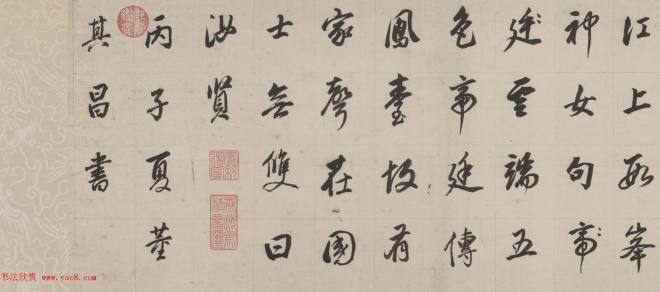 江上數峯
神女句帝
廷雲端五
色帝廷傳
鳳臺故有
家聲在國
士無雙曰
汝賢
丙子夏董
其昌書
书法欣赏 www.yac8.com